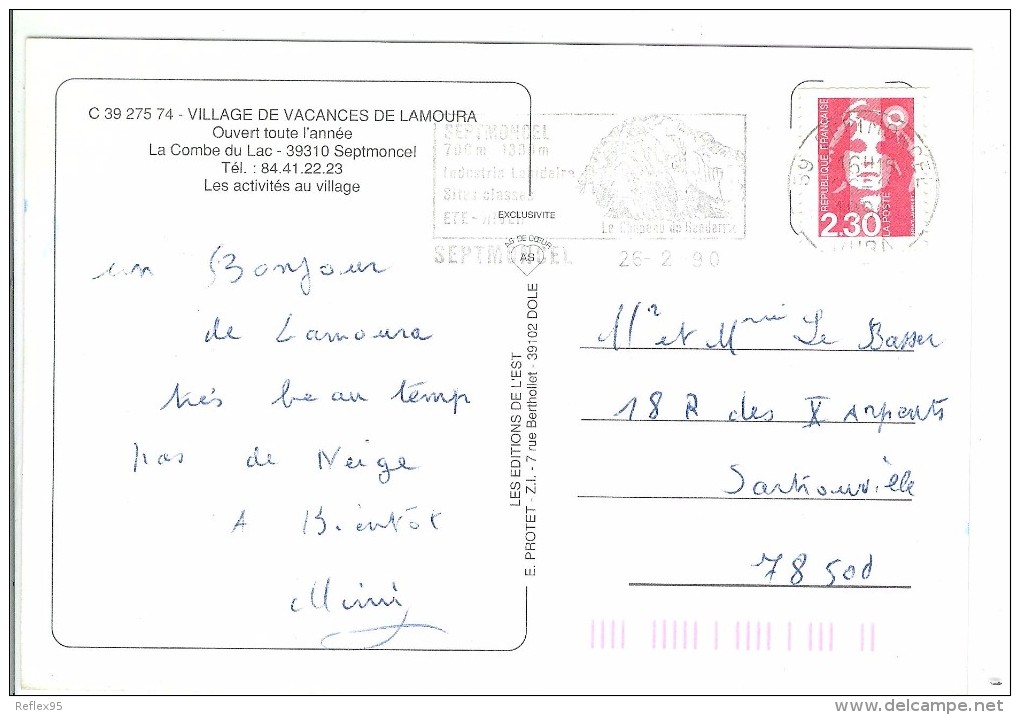 C 39 275 74 - VILLAGE DE VACANCES DE LAMOURA
Ouvert toute l'année
La Combe du Lac - 39310 Septmoncel
Tél. : 84.41.22.23
Les activités au village
SEPTMONCEL
Industrie Lapidaire
Sites classés
ETE - HIVER
Le Chapeau de Gendarme
SEPTMONCEL
26-2-90
EXCLUSIVITE
AS DE CŒUR
AS
REPUBLIQUE FRANÇAISE
LA POSTE
2.30
39
un Bonjour
de Lamoura
très beau temp
pas de Neige
A Bientôt
Mimi
LES EDITIONS DE L'EST
E. PROTET - Z.I. - 7 rue Berthollet - 39102 DOLE
Mr et Mme Le Basser
18 R des X Arpents
Sartrouville
78500
Reflex95
www.delcampe.net